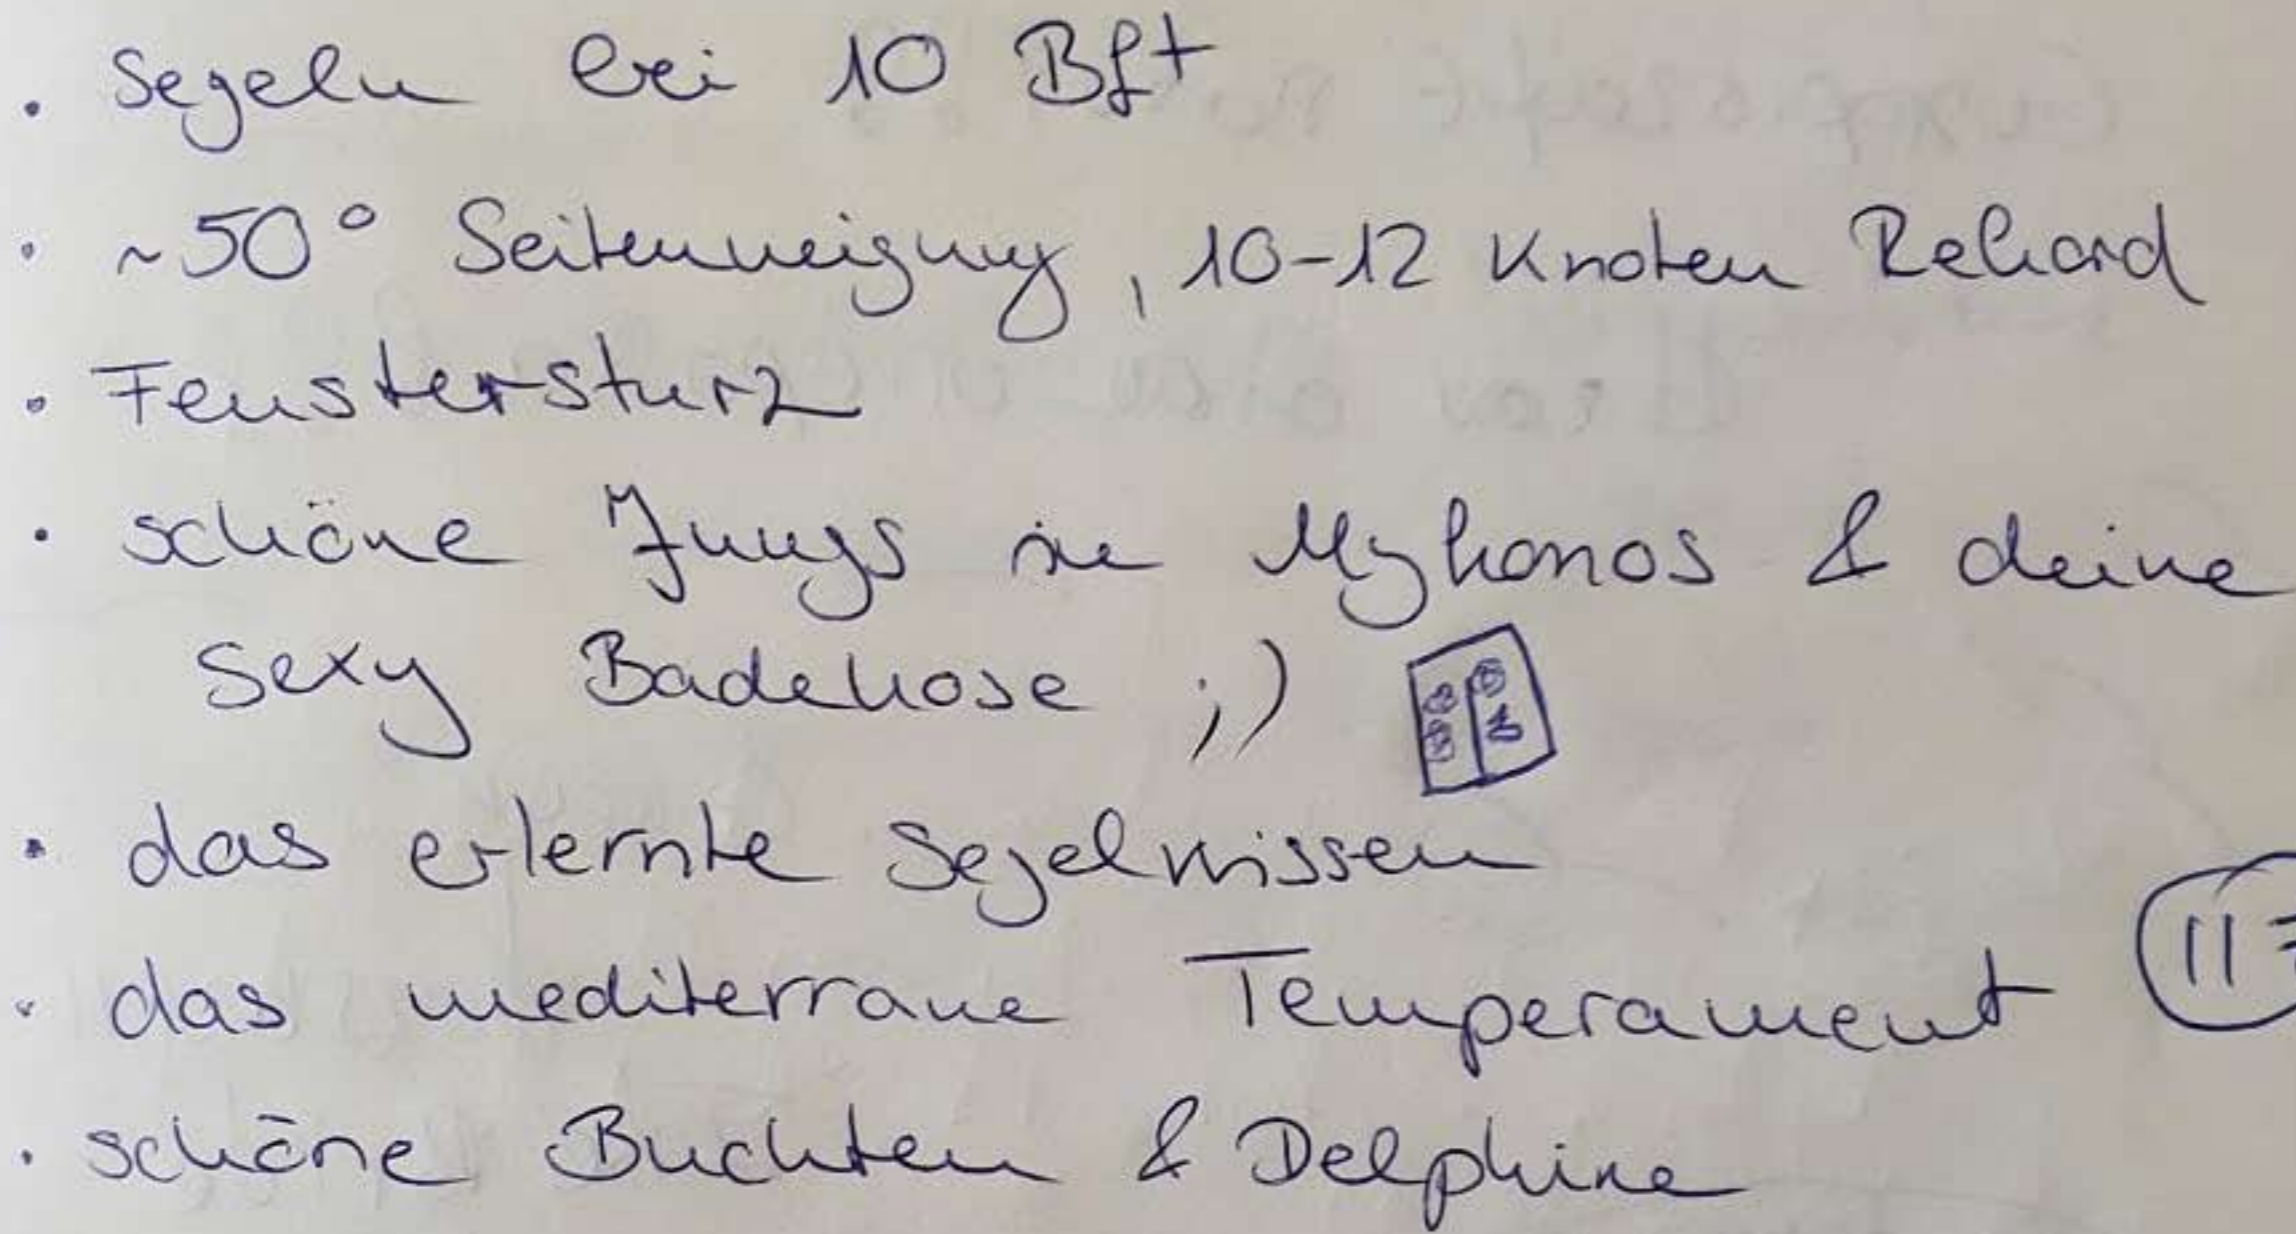 . Segeln bei 10 Bft
. ~50° Seitenneigung, 10-12 Knoten Rekord
. Fenstersturz
. schöne Jungs in Mykonos & deine
sexy Badehose ;)
. das erlernte Segelwissen
. das mediterrane Temperament
. schöne Buchten & Delphine